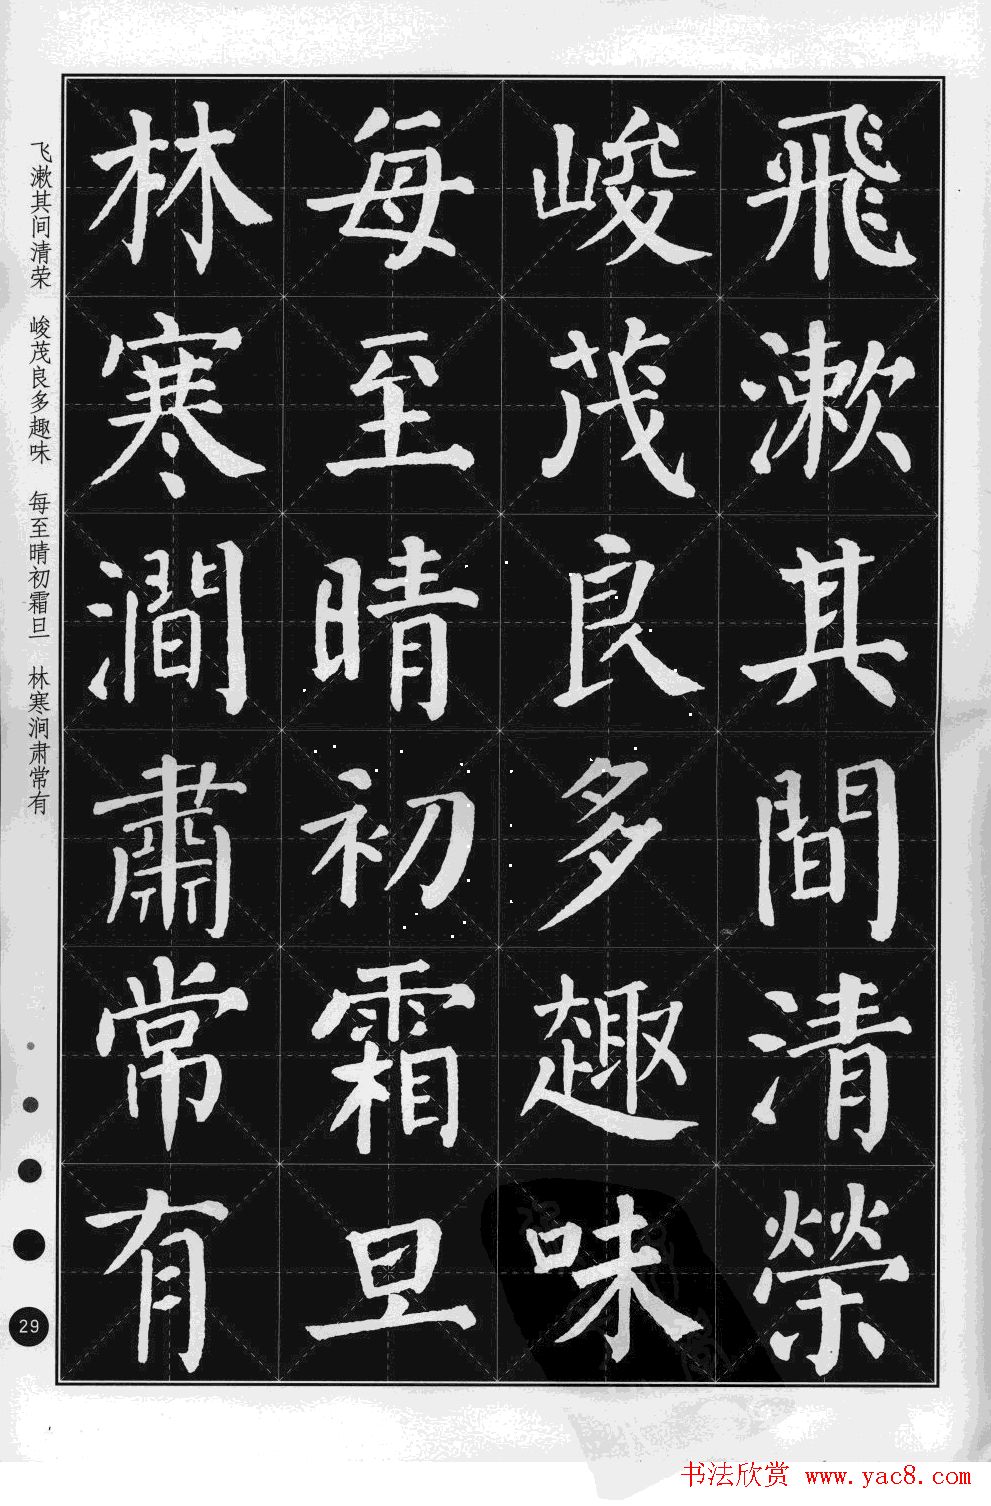 飛漱其間清榮
峻茂良多趣味
每至晴初霜旦
林寒澗肅常有
飞漱其间清荣 峻茂良多趣味 每至晴初霜旦 林寒涧肃常有
29
书法欣赏 www.yac8.com